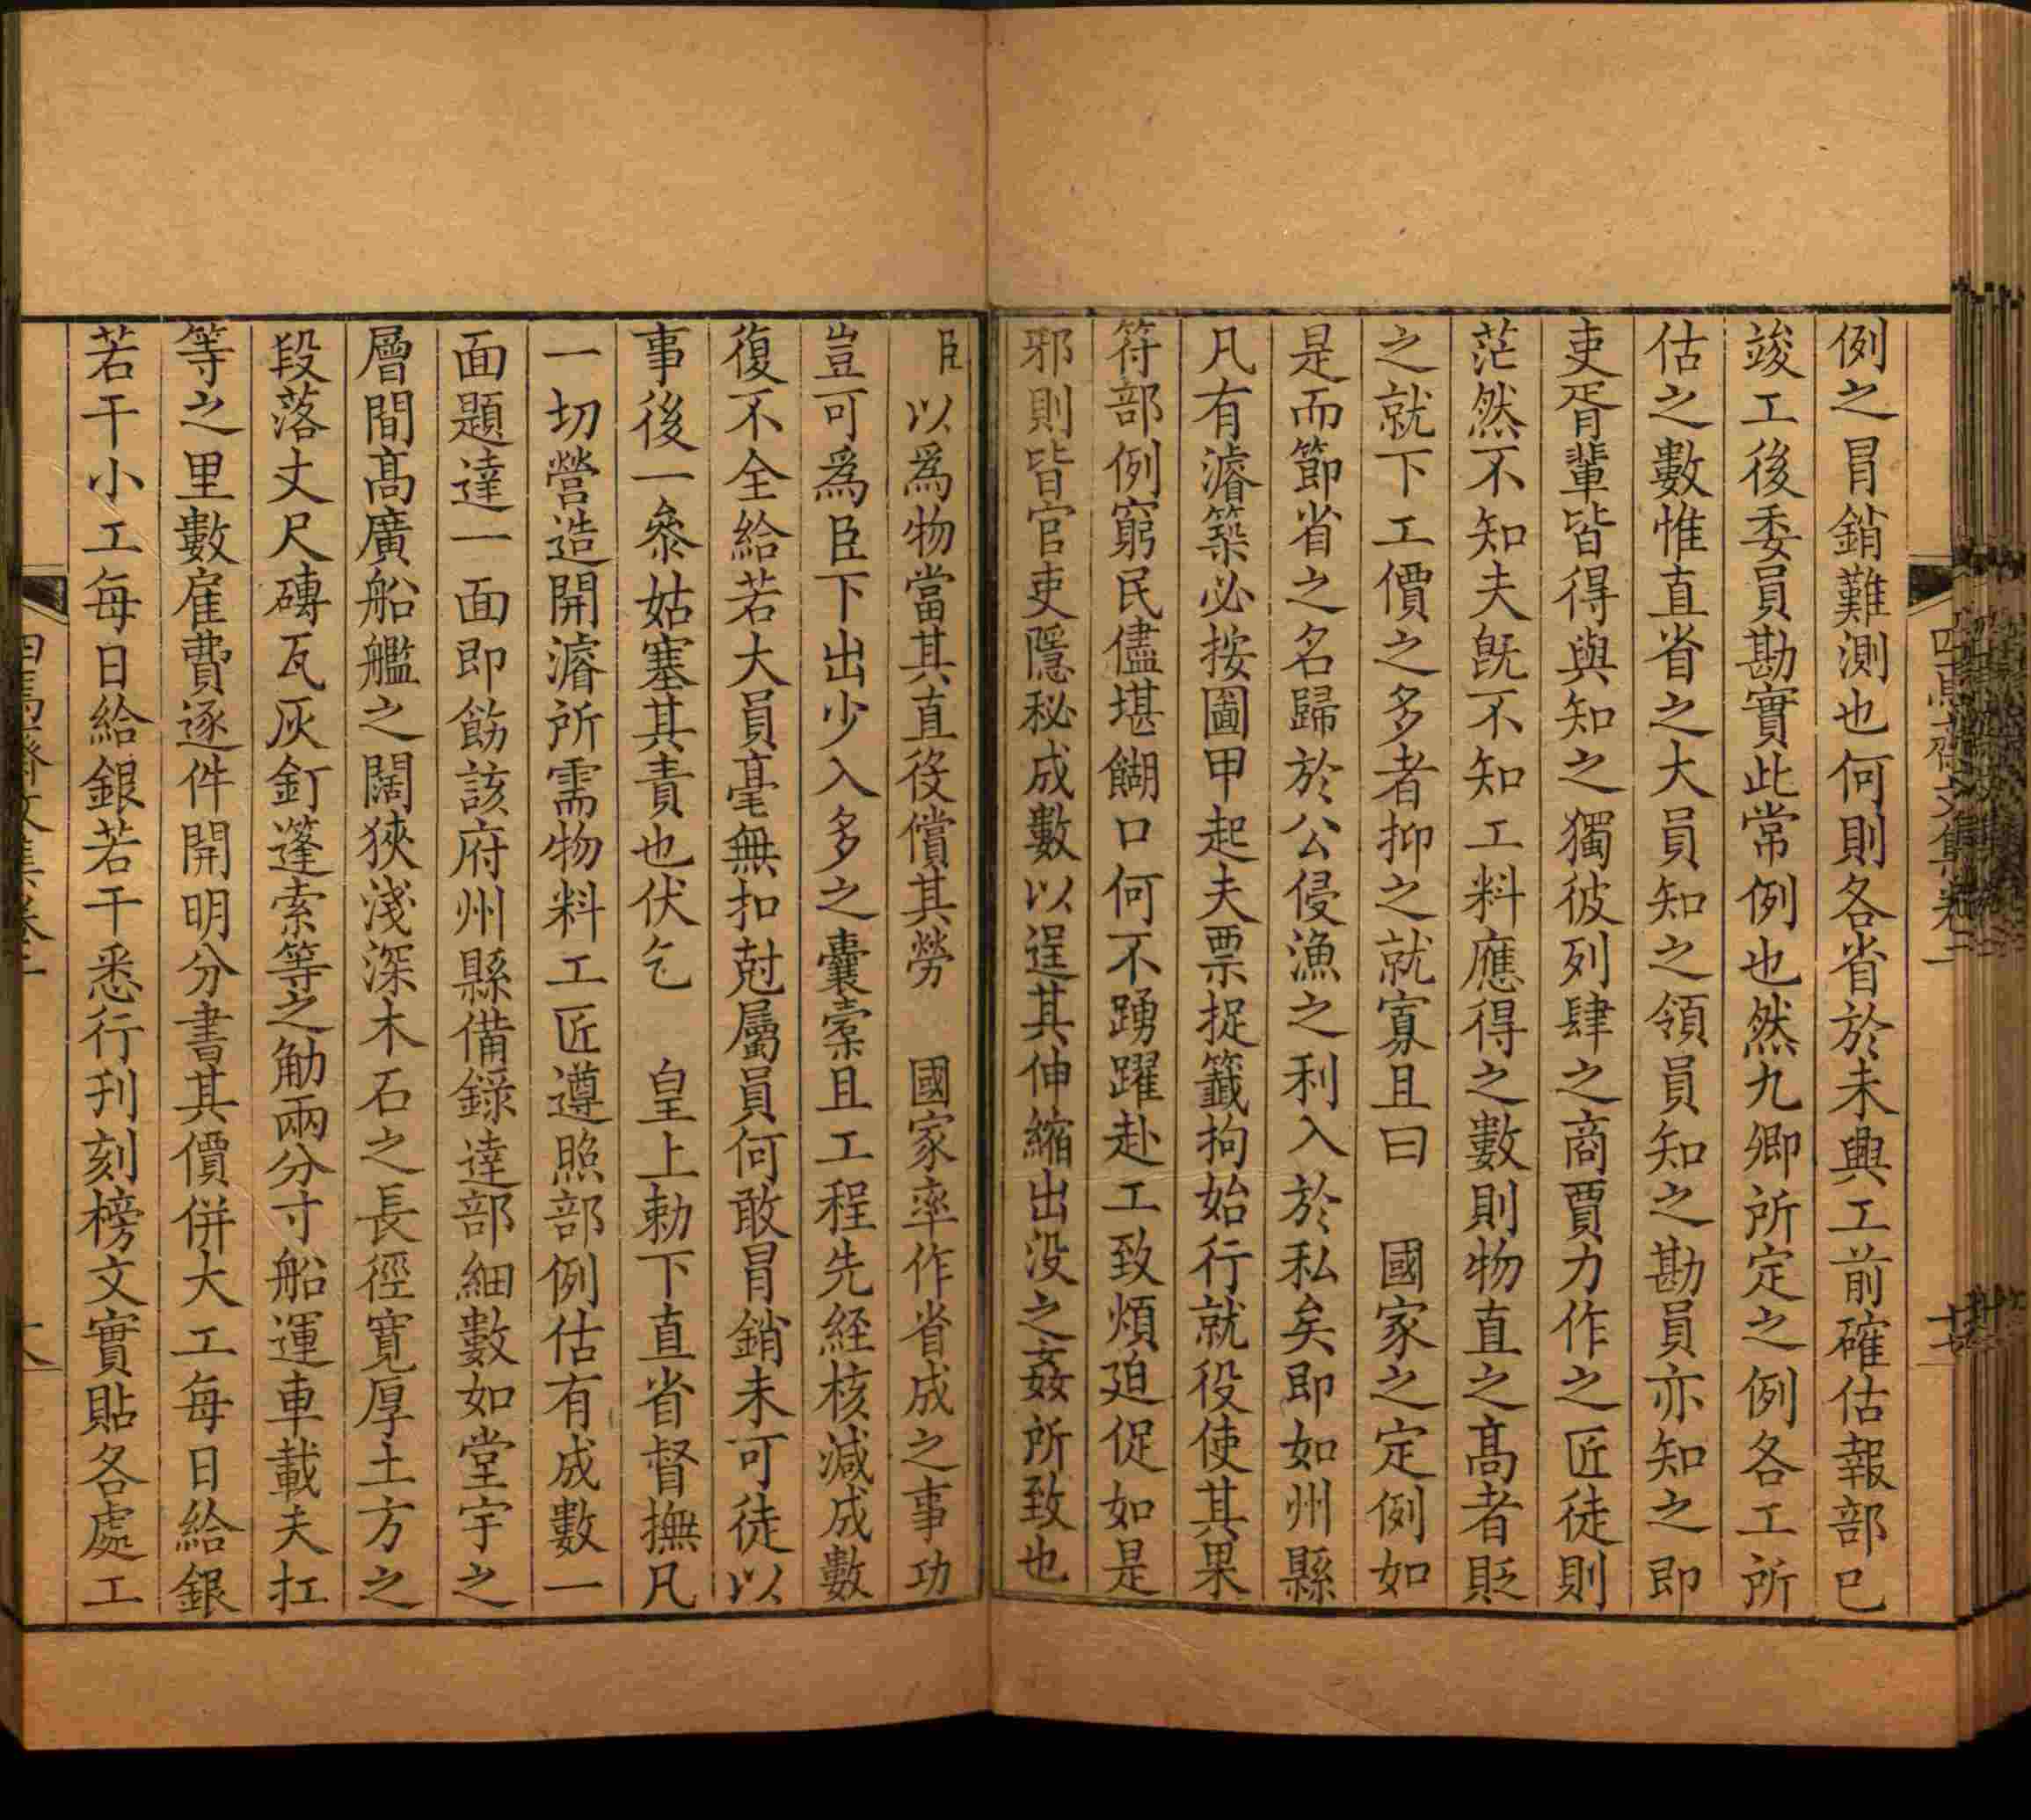 例之冒銷難測也何則各省於未興工前確估報部已
竣工後委員勘實此常例也然九卿所定之例各工所
估之數惟直省之大員知之領員知之勘員亦知之即
吏胥輩皆得與知之獨彼列肆之商賈力作之匠徒則
茫然不知夫旣不知工料應得之數則物直之高者貶
之就下工價之多者抑之就寡且曰　國家之定例如
是而節省之名歸於公侵漁之利入於私矣即如州縣
凡有濬築必按圖甲起夫票捉籤拘始行就役使其果
符部例窮民儘堪餬口何不踴躍赴工致煩廹促如是
邪則皆官吏隱秘成數以逞其伸縮出没之姦所致也
臣以爲物當其直役償其勞　國家率作省成之事功
豈可爲臣下出少入多之囊橐且工程先経核減成數
復不全給若大員毫無扣尅屬員何敢冒銷未可徒以
事後一叅姑塞其責也伏乞　皇上勅下直省督撫凡
一切營造開濬所需物料工匠遵照部例估有成數一
面題達一面即飭該府州縣備錄達部細數如堂宇之
層間高廣船艦之闊狹淺深木石之長徑寬厚土方之
段落丈尺磚瓦灰釘蓬索等之觔兩分寸船運車載夫扛
等之里數雇費逐件開明分書其價併大工每日給銀
若干小工每日給銀若干悉行刊刻榜文實貼各處工
四焉齋文集卷二
十七
四焉齋文集卷二